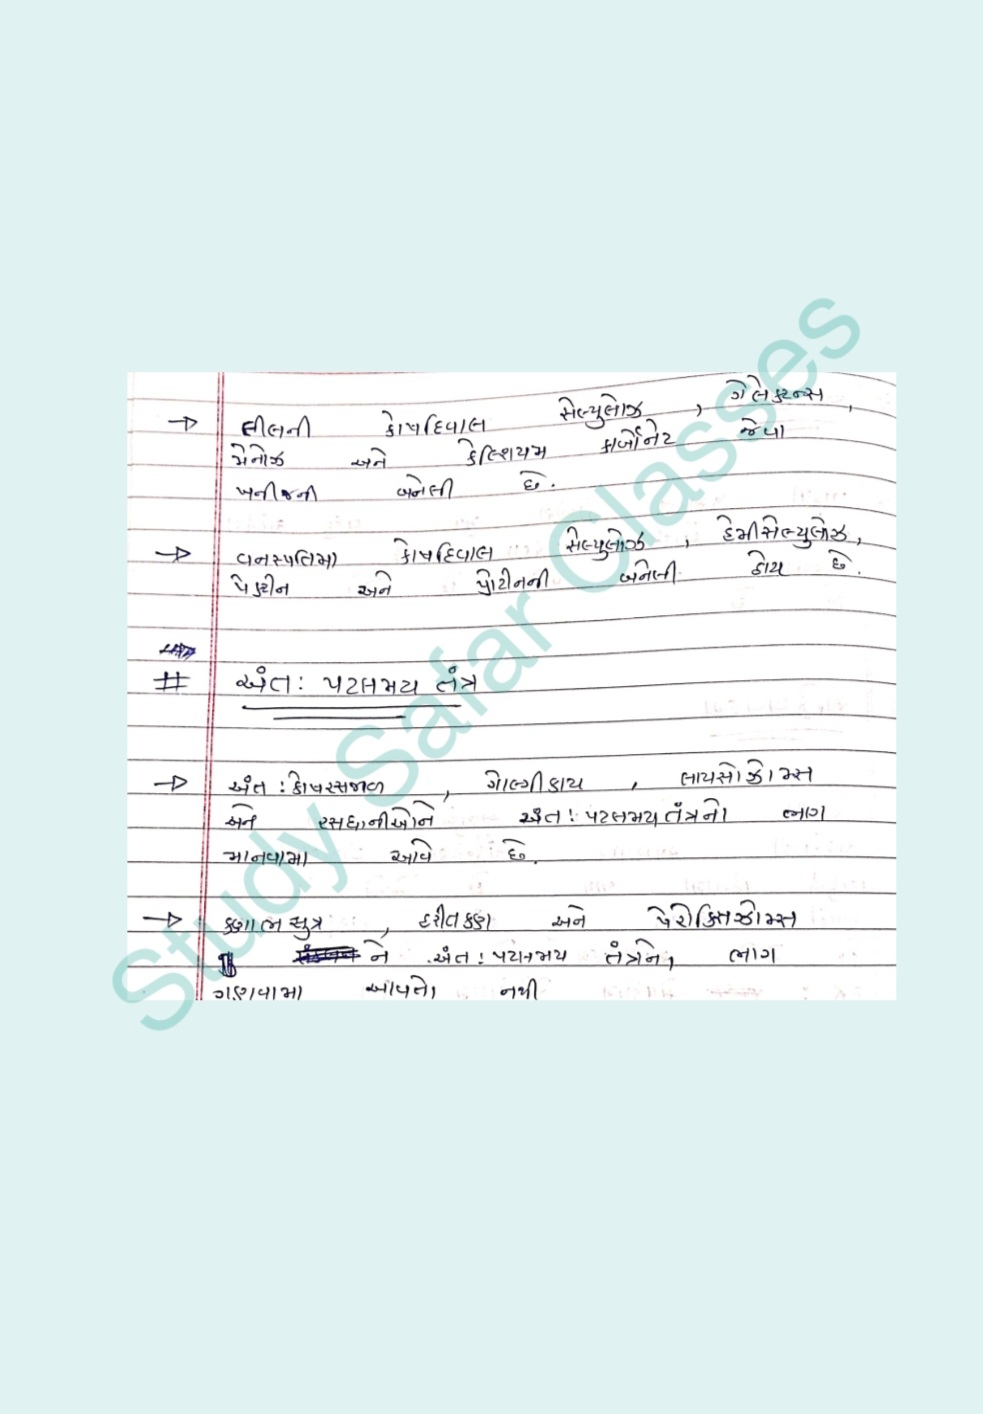 → લીલની કોષદિવાલ સેલ્યુલોઝ , ગેલેક્ટન્સ ,
મેનોઝ અને કેલ્શિયમ કાર્બોનેટ જેવા
ખનીજની બનેલી છે.
→ વનસ્પતિમા કોષદિવાલ સેલ્યુલોઝ , હેમીસેલ્યુલોઝ,
પેક્ટીન અને પ્રોટીનની બનેલી હોય છે.
# અંતઃ પટલમય તંત્ર
→ અંતઃકોષરસજાળ , ગોલ્ગીકાય , લાયસોઝોમ્સ
અને રસધાનીઓને અંતઃપટલમય તંત્રનો ભાગ
માનવામા આવે છે.
→ કણાભસુત્ર , હરીતકણ અને પેરોક્સિઝોમ્સ
ને અંતઃપટલમય તંત્રનો ભાગ
ગણવામા આવતો નથી
Study Safar Classes